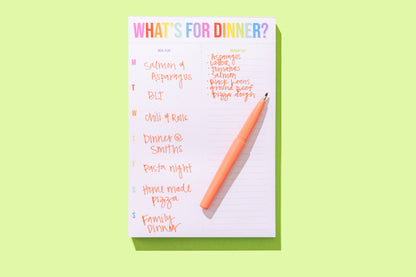 WHAT'S FOR DINNER?
MEAL PLAN
M
Salmon &
Asparagus
T
BLT
W
Chili & Rolls
T
Dinner @
Smiths
F
Pasta night
S
Home made
Pizza
S
Family
Dinner
Asparagus
Tomatoes
Salmon
Black beans
Ground beef
Pizza dough